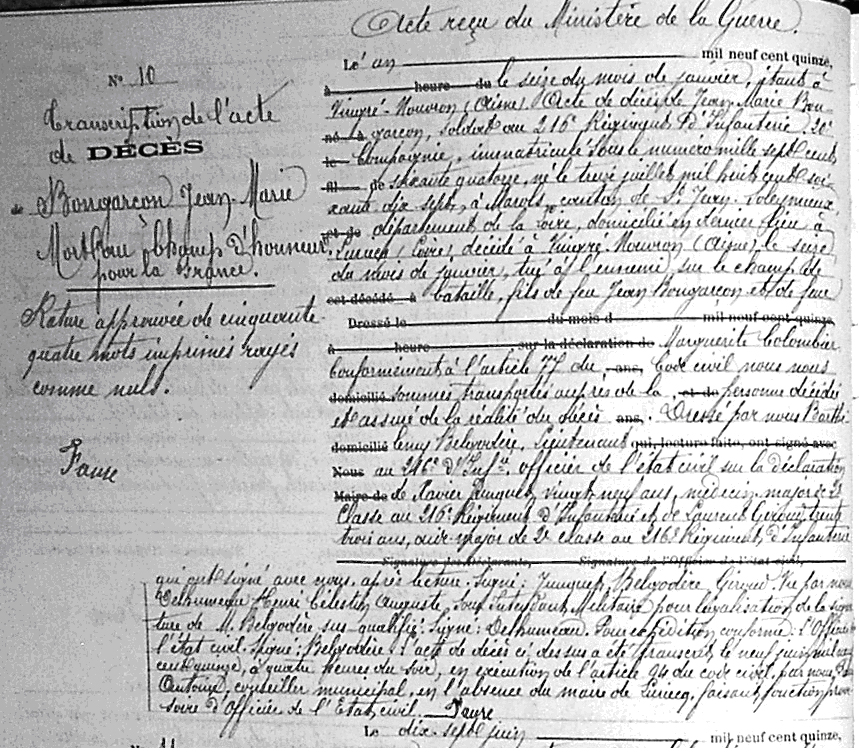 Acte reçu du Ministère de la Guerre.
Le an mil neuf cent quinze,
N° 10
à heure du le seize du mois de janvier, étant à
Vingré-Nouvron (Aisne). Acte de décès de Jean Marie Bon-
Transcription de l'acte
né à garçon, soldat au 216e Régiment d'Infanterie 20e
de DÉCÈS
le Compagnie, immatriculé sous le numéro mille sept cent
fil de soixante quatorze, né le treize juillet mil huit cent soi-
de Bongarçon Jean-Marie
xante dix sept, à Marols, canton de St Jean-Soleymieux,
et de département de la Loire, domicilié en dernier lieu à
Mort au Champ d'honneur
(Loire), décédé à Vingré-Nouvron (Aisne), le seize
pour la France.
du mois de janvier, tué à l'ennemi, sur le champ de
est décédé à bataille, fils de feu Jean Bongarçon et de feue
Rature approuvée de cinquante-
Dressé le du mois d mil neuf cent quinze,
quatre mots imprimés rayés
à heure sur la déclaration de Marguerite Colombar
comme nuls.
Conformément à l'article 77 du ans, Code civil nous nous
domicilié sommes transportés auprès de la et de personne décédée
et assuré de la réalité du décès ans, . Dressé par nous Barthé-
Faure
domicilié lemy Belgodère, Lieutenant qui, lecture faite, ont signé avec
Nous au 216e d'Infie, officier de l'état civil sur la déclaration
Maire de de Xavier Junquet, vingt-neuf ans, médecin-major de 2e
Classe au 216e Régiment d'Infanterie et de Laurent Giroud, trente
trois ans, aide-major de 2e classe au 216e Régiment d'Infanterie
Signature des Déclarants, Signature de l'Officier de l'état civil,
qui ont signé avec nous, après lecture. Signé : Junquet, Belgodère, Giroud. Vu par nous
Delhumeau Henri Célestin Auguste, Sous Intendant Militaire pour légalisation de la signa-
ture de M. Belgodère sus qualifié. Signé : Delhumeau. Pour expédition conforme : l'Officier de
l'état civil. Signé : Belgodère. L'acte de décès ci dessus a été transcrit le neuf juin mil neuf
cent quinze, à quatre heures du soir, en exécution de l'article 94 du code civil, par nous,
Antoine, conseiller municipal, en l'absence du maire de faisant fonction provi-
soire d'Officier de l'Etat civil. Faure
Le dix-sept juin mil neuf cent quinze,
N° 11